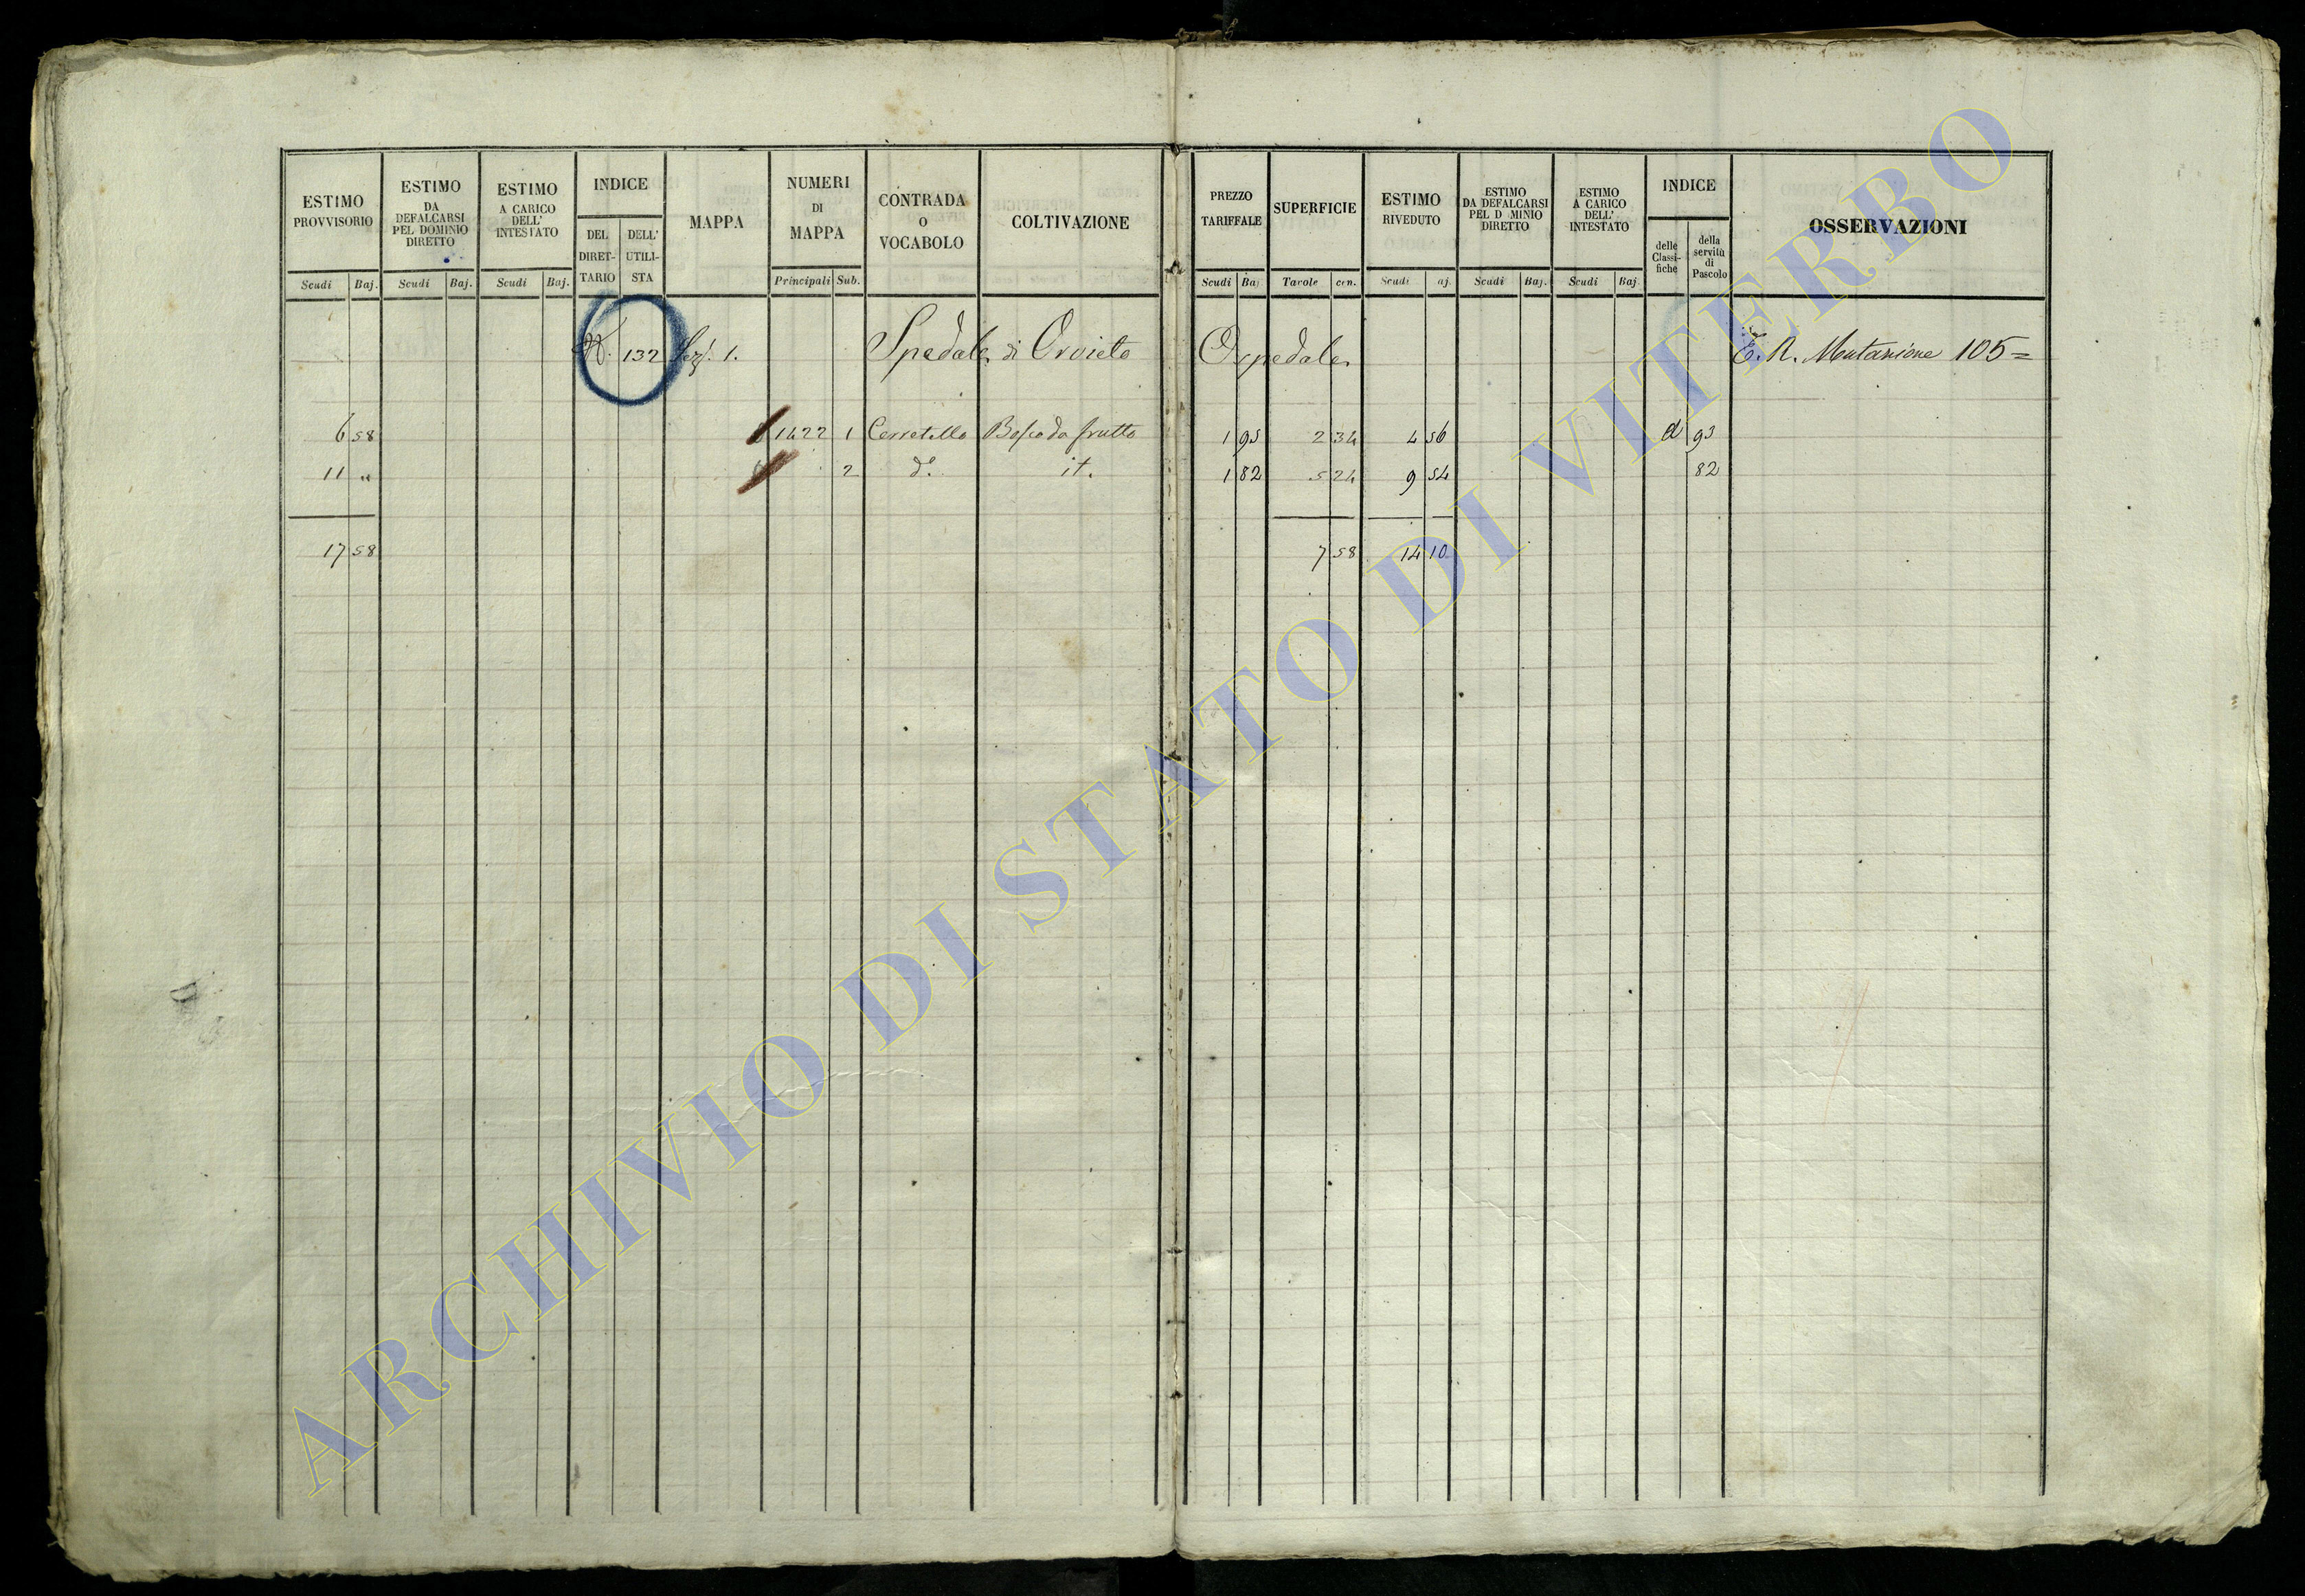 ESTIMO PROVVISORIO
Scudi Baj.
ESTIMO DA DEFALCARSI PEL DOMINIO DIRETTO
Scudi Baj.
ESTIMO A CARICO DELL' INTESTATO
Scudi Baj.
INDICE
DEL DIRET-TARIO
DELL' UTILI-STA
MAPPA
NUMERI DI MAPPA
Principali Sub.
CONTRADA O VOCABOLO
COLTIVAZIONE
PREZZO TARIFFALE
Scudi Ba
SUPERFICIE
Tavole cen.
ESTIMO RIVEDUTO
Scudi aj.
ESTIMO DA DEFALCARSI PEL D MINIO DIRETTO
Scudi Baj.
ESTIMO A CARICO DELL' INTESTATO
Scudi Baj.
INDICE
delle Classi-fiche
della servitù di Pascolo
OSSERVAZIONI
132 Sez. 1. Spedale di Orvieto Ospedale E. R. Mutazione 105=
6 58 1422 1 Cerretello Bosco da frutto 1 95 2 34 4 56 d 93
11 " 2 d.o it. 1 82 5 24 9 54 82
17 58 7 58 14 10
ARCHIVIO DI STATO DI VITERBO